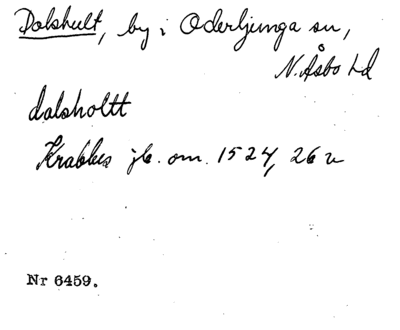 Dalshult, by i Oderljunga sn,
N. Åsbo hd
dalsholtt
Krabbes jb. om. 1524, 26 v
Nr 6459.